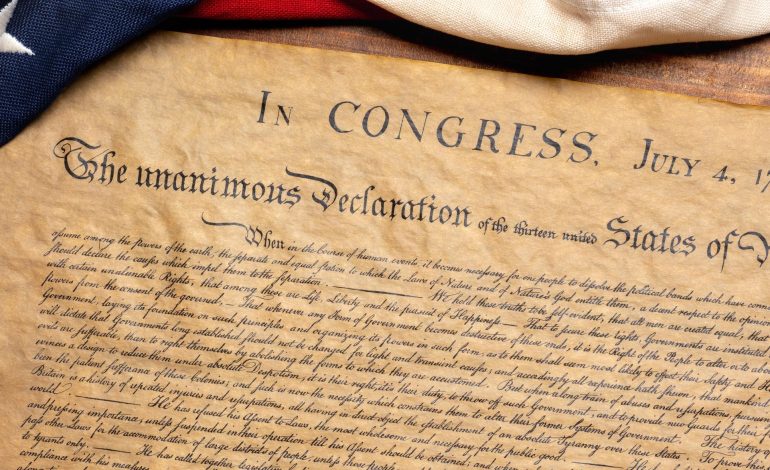 In CONGRESS, July 4, 17
The unanimous Declaration of the thirteen united States of
When in the Course of human events it becomes necessary for one people to dissolve the political bands which have con
assume among the powers of the earth, the separate and equal station to which the Laws of Nature and of Nature's God entitle them, a decent respect to the opinion
should declare the causes which impel them to the separation. We hold these truths to be self-evident, that all men are created equal, that
with certain unalienable Rights, that among these are Life, Liberty and the pursuit of Happiness.— That to secure these rights, Governments are instituted
powers from the consent of the governed,— That whenever any Form of Government becomes destructive of these ends, it is the Right of the People to alter or to abo
Government, laying its foundation on such principles and organizing its powers in such form, as to them shall seem most likely to effect their Safety and H
will dictate that Governments long established should not be changed for light and transient causes; and accordingly all experience hath shewn, that mankind
evils are sufferable, than to right themselves by abolishing the forms to which they are accustomed. But when a long train of abuses and usurpations, pursuin
evinces a design to reduce them under absolute Despotism, it is their right, it is their duty, to throw off such Government, and to provide new Guards for their f
been the patient sufferance of these Colonies; and such is now the necessity which constrains them to alter their former Systems of Government. The history o
Britain is a history of repeated injuries and usurpations, all having in direct object the establishment of an absolute Tyranny over these States. To prove th
world. He has refused his Assent to Laws, the most wholesome and necessary for the public good.
and pressing importance, unless suspended in their operation till his Assent should be obtained; and when
pass other Laws for the accommodation of large districts of people, unless those people
to tyrants only. He has called together legislative
compliance with his measures